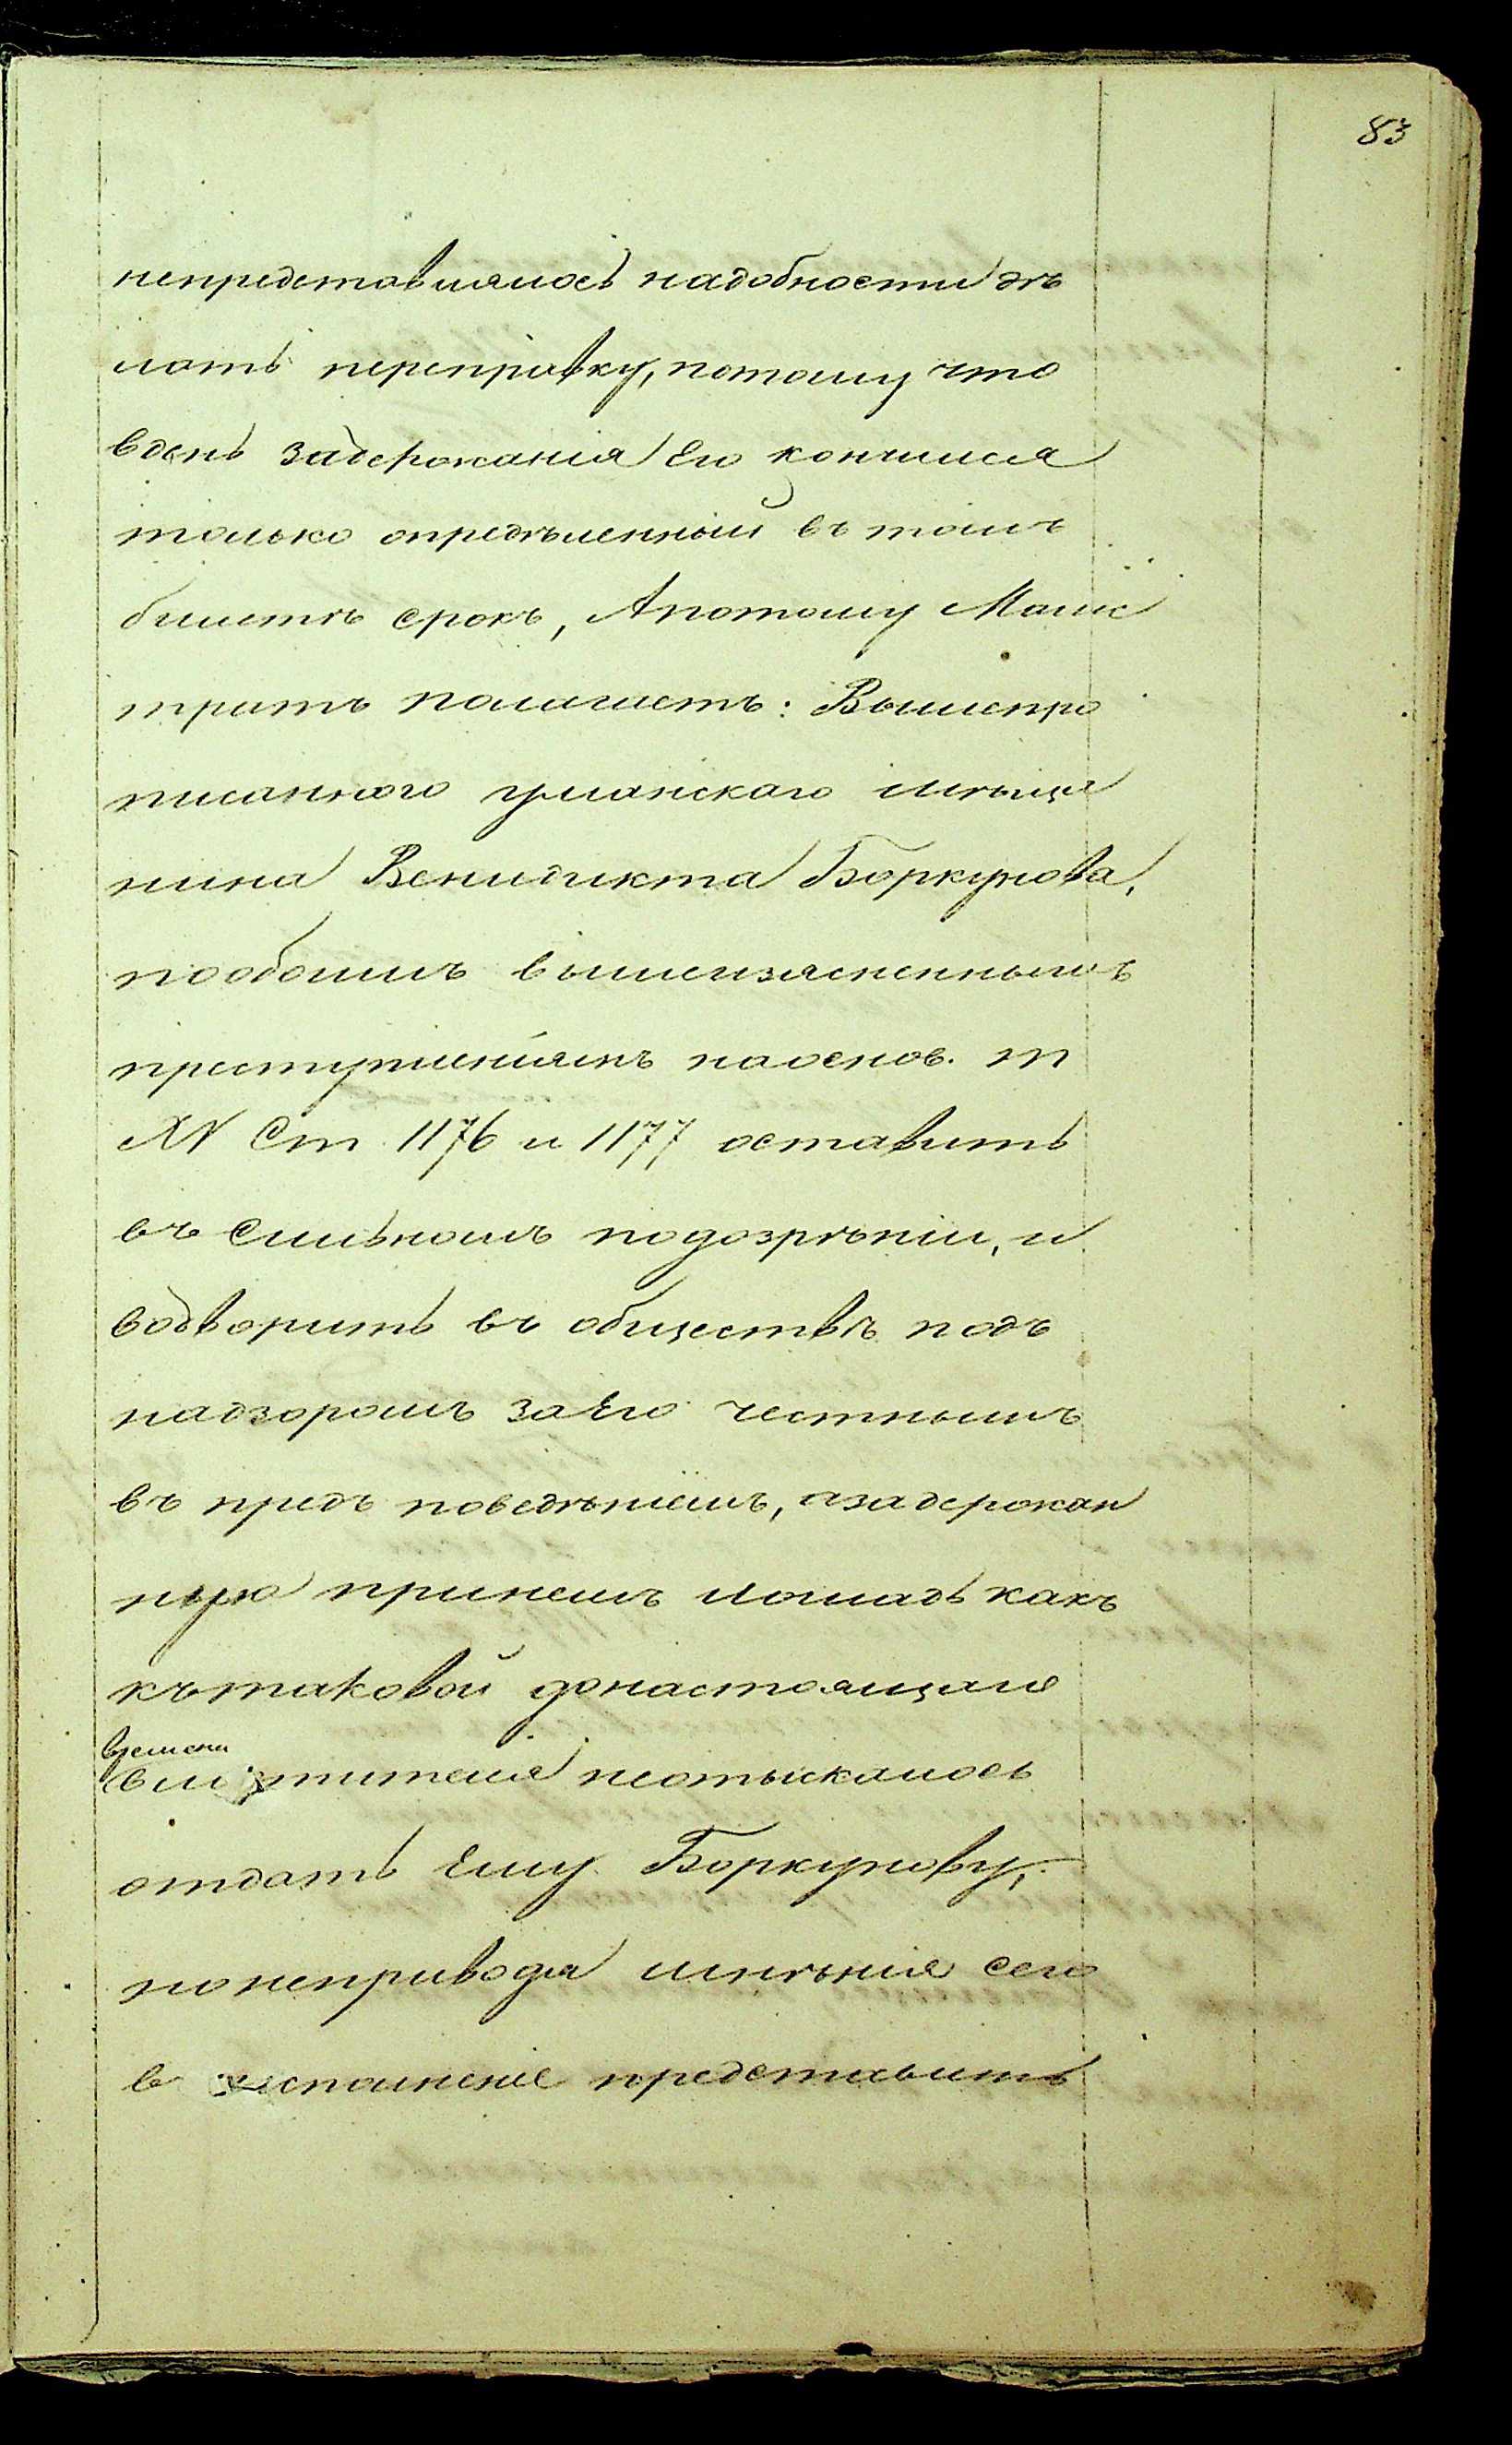 83
непредставлялось надобности дѣ
лать переправку, потому что
вдень задержанія Его кончился
только опредѣленный въ томъ
билетѣ срокъ, Апотому Магис
тратъ полагаетъ: Вышепро
писанного уманскаго мѣща
нина Венидикта Боркунова,
пообоимъ вышеизясненнымъ
преступленіямъ наоснов. т
XV Ст 1176 и 1177 оставить
въ Сильномъ подозрѣніи, и
водворить въ обществѣ подъ
надзоромъ заЕго честнымъ
въ предь поведѣніемъ, азадержан
ную принемъ лошадь какъ
кътаковой донастоящаго
времени
влостителя неотыскалось
отдать Ему Боркунову,
но неприводя мнѣнія сего
в исполненіе представить